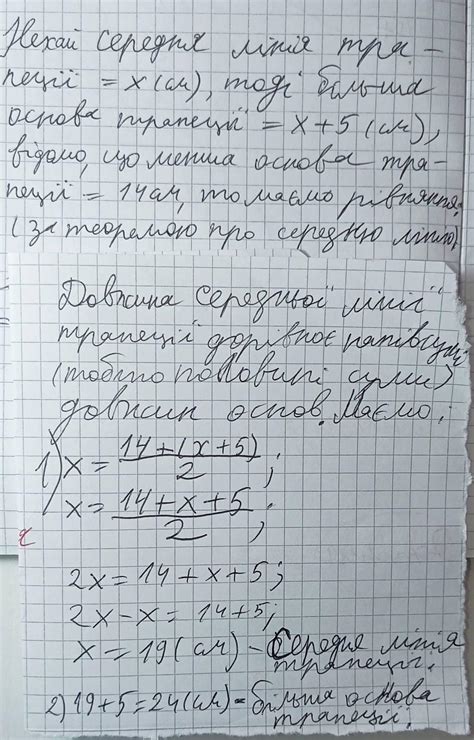 Нехай середня лінія тра-
пеції = x (см), тоді більша
основа трапеції = x + 5 (см),
відомо, що менша основа тра-
пеції = 14 см, то маємо рівняння:
(за теоремою про середню лінію).
Довжина середньої лінії
трапеції дорівнює півсумі
(тобто половині суми)
довжин основ. Маємо:
1) x = (14 + (x + 5)) / 2;
x = (14 + x + 5) / 2;
2x = 14 + x + 5;
2x - x = 14 + 5;
x = 19 (см) - Середня лінія
трапеції.
2) 19 + 5 = 24 (см) - більша основа
трапеції.